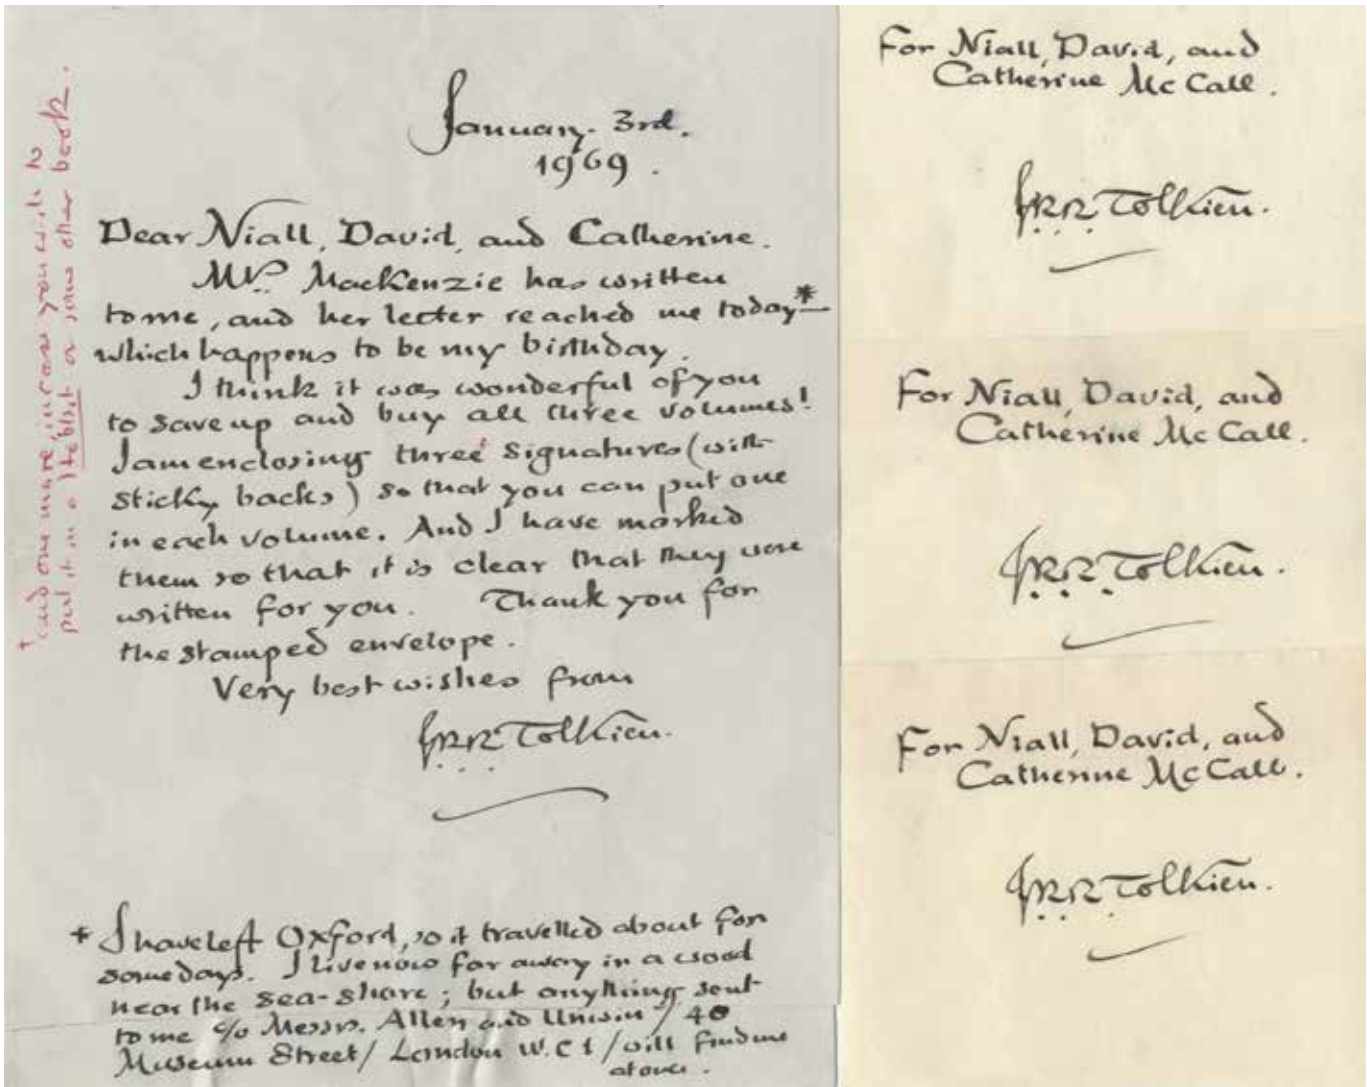 January. 3rd.
1969.
Dear Niall, David, and Catherine.
Mrs. MacKenzie has written
to me, and her letter reached me today*
which happens to be my birthday.
I think it was wonderful of you
to save up and buy all three volumes!
I am enclosing three+ signatures (with
sticky backs) so that you can put one
in each volume. And I have marked
them so that it is clear that they were
written for you. Thank you for
the stamped envelope.
Very best wishes from
JRR Tolkien.
* I have left Oxford, so it travelled about for
some days. I live now far away in a wood
near the sea-shore; but anything sent
to me c/o Messrs. Allen and Unwin / 40
Museum Street / London W.C1 / will find me
at once.
+ and one more, in case you wish to
put it in a Hobbit or some other book.
For Niall, David, and
Catherine McCall.
JRR Tolkien.
For Niall, David, and
Catherine McCall.
JRR Tolkien.
For Niall, David, and
Catherine McCall.
JRR Tolkien.